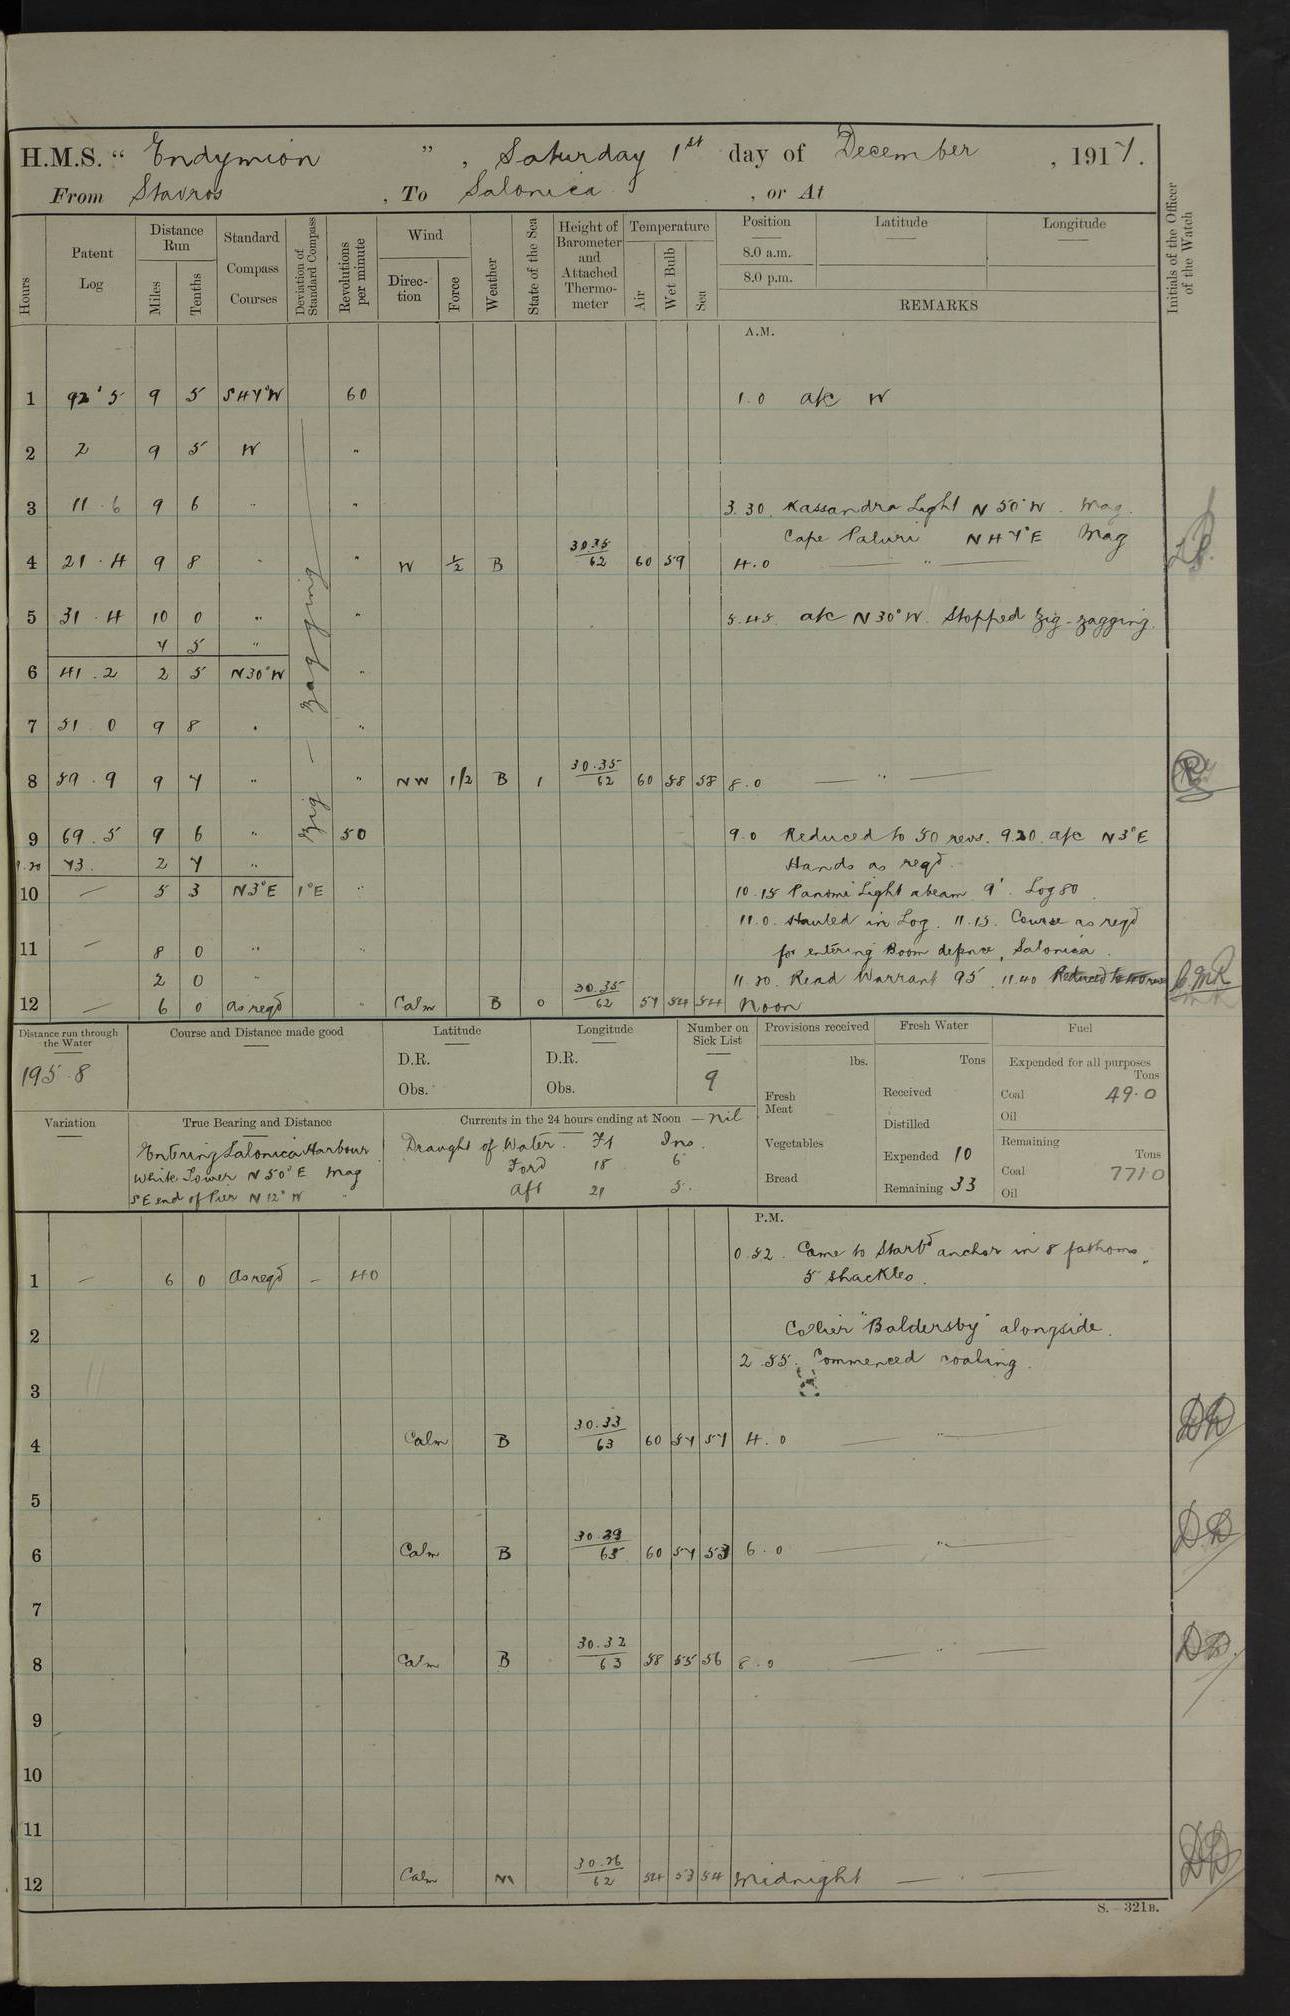 H.M.S. " Endymion ", Saturday 1st day of December, 1917.
From Stavros, To Salonica, or At
Hours
Patent Log
Distance Run
Miles
Tenths
Standard Compass Courses
Deviation of Standard Compass
Revolutions per minute
Wind
Direction
Force
Weather
State of the Sea
Height of Barometer and Attached Thermometer
Temperature
Air
Wet Bulb
Sea
Position
8.0 a.m.
8.0 p.m.
Latitude
Longitude
REMARKS
Initials of the Officer of the Watch
A.M.
Zig - zagging
1 92·5 9 5 S47°W 60 1.0 a/c W
2 2 9 5 W "
3 11·6 9 6 " " 3.30. Kassandra Light N 50°W. Mag.
Cape Paluri N 47°E Mag
4 21·4 9 8 " " W ½ B 30.35/62 60 59 4.0 — " —
5 31·4 10 0 " " 5.45. a/c N30°W. Stopped zig-zagging.
7 5 "
6 41.2 2 5 N30°W "
7 51.0 9 8 " "
8 59.9 9 7 " " NW 1/2 B 1 30.35/62 60 58 58 8.0 — " —
9 69.5 9 6 " 50 9.0 Reduced to 50 revs. 9.20. a/c N3°E
9.20 73. 2 7 " Hands as reqd.
10 — 5 3 N3°E 1°E " 10.15 Panomi Light abeam 9'. Log 80
11.0. Hauled in Log. 11.15. Course as reqd
11 — 8 0 " " for entering Boom defence, Salonica.
2 0 " 11.20. Read Warrant 95. 11.40 Reduced to 40 revs
12 — 6 0 as reqd " Calm B 0 30.35/62 57 54 54 Noon
Distance run through the Water
195.8
Course and Distance made good
Latitude
D.R.
Obs.
Longitude
D.R.
Obs.
Number on Sick List
9
Provisions received
lbs.
Fresh Meat
Vegetables
Bread
Fresh Water
Tons
Received
Distilled
Expended 10
Remaining 33
Fuel
Expended for all purposes
Tons
Coal 49.0
Oil
Remaining
Tons
Coal 771.0
Oil
Variation
True Bearing and Distance
Entering Salonica Harbour
White Tower N 50°E Mag
SE end of Pier N 12°W "
Currents in the 24 hours ending at Noon — nil
Draught of Water. Ft Ins.
Ford 18 6
Aft 21 5.
P.M.
0.52. Came to Starbd anchor in 8 fathoms,
1 — 6 0 as reqd — 40 5 shackles.
2 Collier "Baldersby" alongside.
2.55. Commenced coaling.
3
4 Calm B 30.33/63 60 57 57 4.0 — " —
5
6 Calm B 30.33/65 60 57 53 6.0 — " —
7
8 Calm B 30.32/63 58 55 56 8.0 — " —
9
10
11
12 Calm M 30.26/62 54 53 54 Midnight — . —
S.—321B.